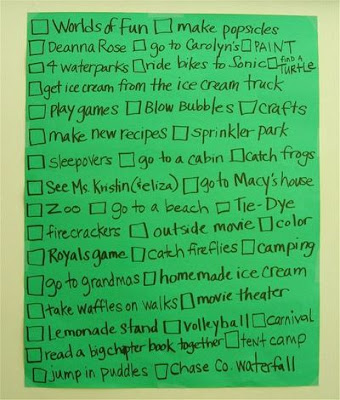 Worlds of fun make popsicles
Deanna Rose go to Carolyn's PAINT
4 waterparks ride bikes to Sonic find a TURTLE
get ice cream from the ice cream truck
Play games Blow Bubbles Crafts
make new recipes sprinkler park
sleepovers go to a cabin catch frogs
See Ms. Kristin (+eliza) go to Macy's house
Zoo go to a beach Tie-Dye
firecrackers outside movie color
Royals game catch fireflies camping
go to grandmas homemade ice cream
take waffles on walks movie theater
Lemonade stand Volleyball carnival
read a big chapter book together tent camp
jump in puddles Chase Co. waterfall